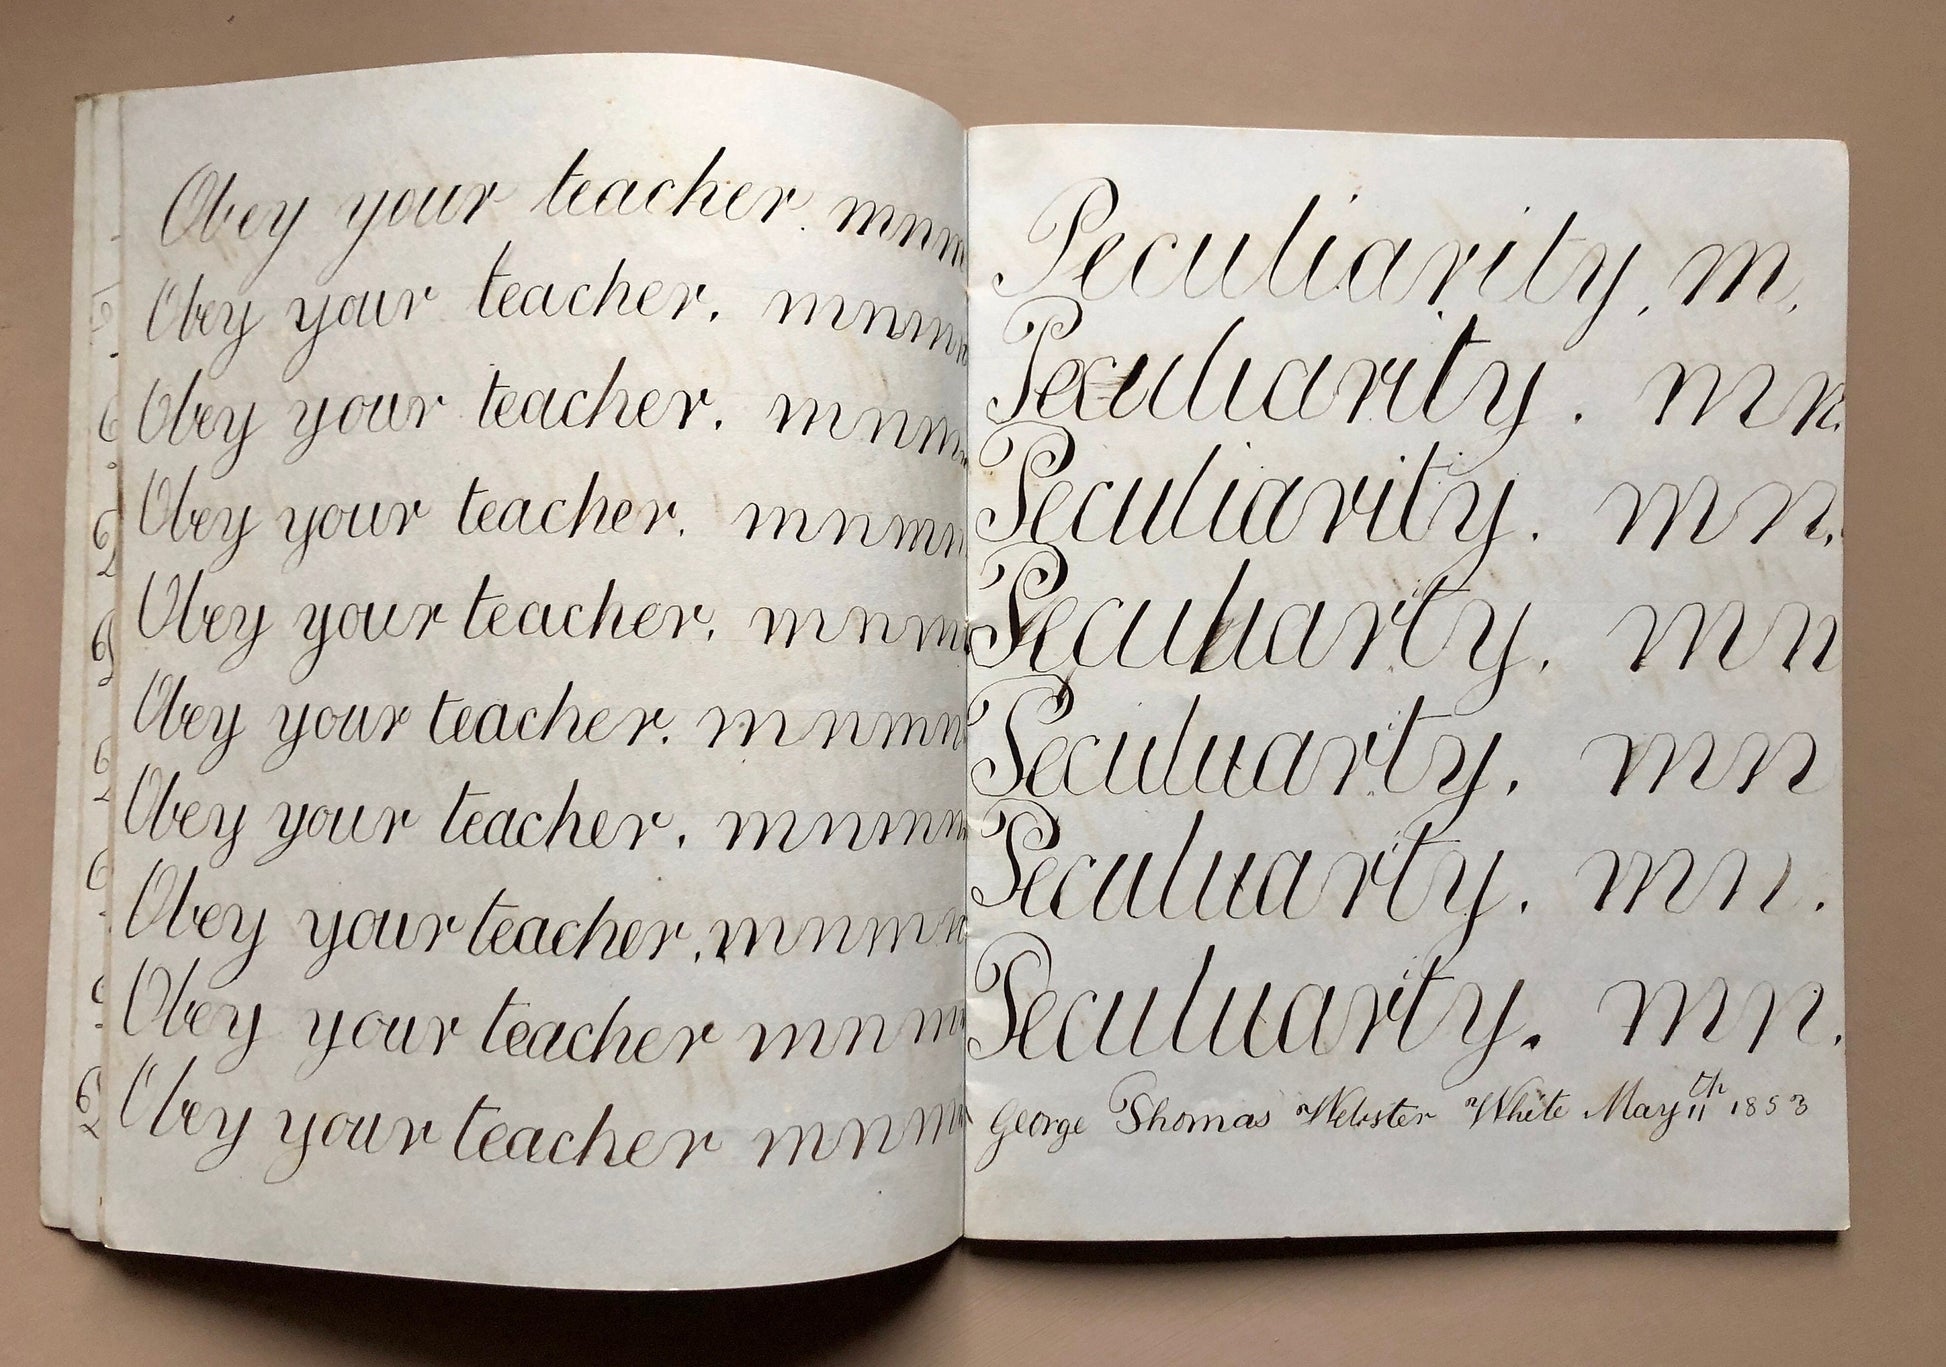 Obey your teacher. mnm
Obey your teacher. mnmn
Obey your teacher. mnm
Obey your teacher. mnmn
Obey your teacher. mnm
Obey your teacher. mnmn
Obey your teacher. mnmn
Obey your teacher. mnmn
Obey your teacher mnm
Obey your teacher mnm
Peculiarity, m,
Peculiarity. mn.
Peculiarity. mn.
Peculiarity. mn
Peculuarity. mn
Peculuarity. mn.
Peculuarity. mn.
George Thomas Webster White May 11th 1853